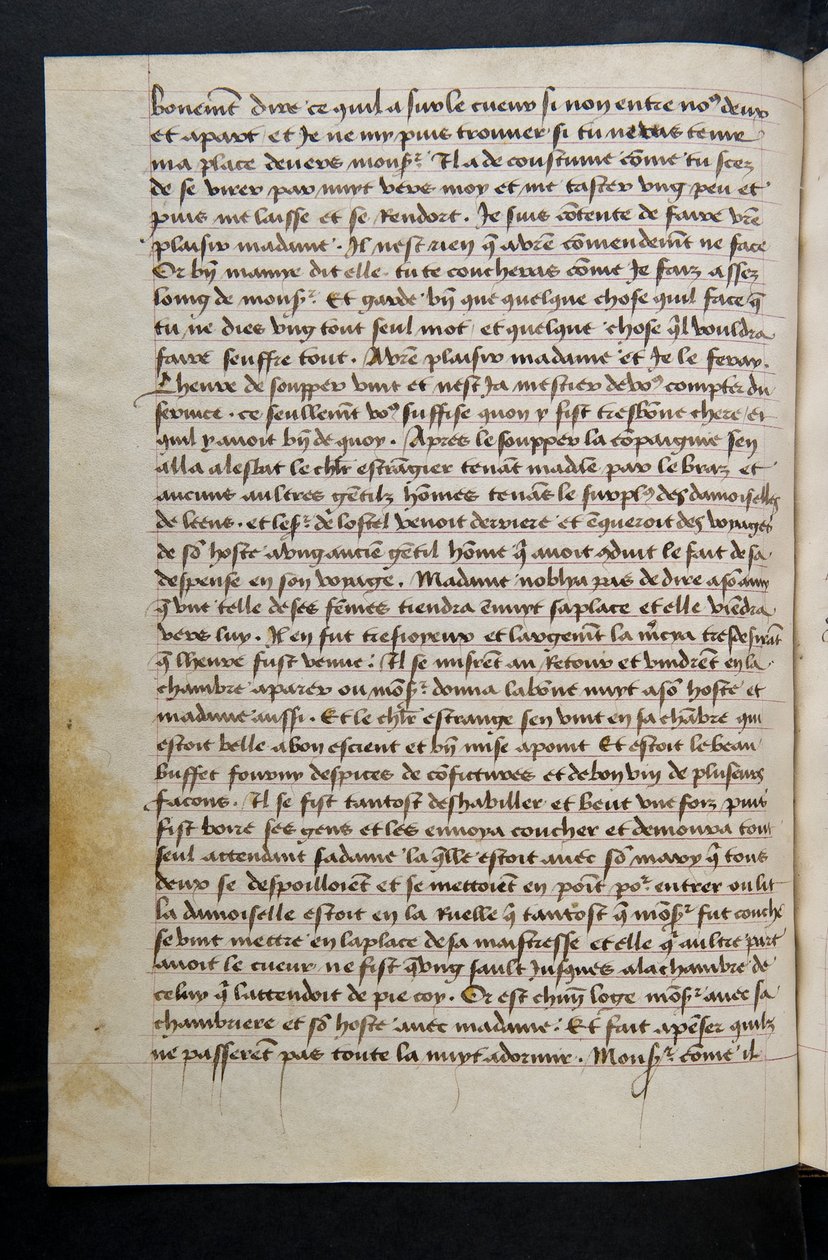 bonemẽt dire ce quil a sur le cueur si non entre noꝰ deux
et apart et Je ne my puis trouuer si tu ne vas tenir
ma place deuers monsr Il a de coustume cõme tu scez
de se virer par nuyt vers moy et me taster vng peu et
puis me laisse et se Rendort . Je suis cõtente de faire vr̃e
plaisir madame . Il nest rien q̃ a vr̃e cõmendemẽt ne face
Or bñ mamye dit elle tu te coucheras cõme Je faiz assez
loing de monsr Et garde bñ que quelque chose quil face q̃
tu ne dies vng tout seul mot et quelque chose q̃l vouldra
faire seuffre tout . A vr̃e plaisir madame et Je le feray .
Lheure de soupper vint et nest Ja mestier de voꝰ compter du
seruice . ce seullemẽt voꝰ suffise quon y fist tresbõne chere et
quil y auoit bñ de quoy . Apres le soupper la cõpaignie sen
alla alesbat le chlr estrãgier tenãt madãe par le braz et
aucuns aultres gẽtilz hõmes tenãs le surplꝰ des damoiselles
de leens . et le sr de lostel venoit derriere et ẽqueroit des voyages
de sõ hoste a vng anciẽ gẽtil hõme q̃ auoit ꝯduit le fait de sa
despense en son voyage . Madame noblya pas de dire a sõ amy
q̃ vne telle de ses fẽmes tiendra ẽnuyt sa place et elle viẽdra
vers luy . Il en fut tresioyeux et largemẽt la mr̃cya tresdesirãt
q̃ lheure fust venue : Ilz se misrẽt au Retour et vindrẽt en la
chambre a parer ou mõsr donna la bõne nuyt a sõ hoste et
madame aussi . Et le chlr estrange sen vint en sa chãbre qui
estoit belle a bon escient et bñ mise a point Et estoit le beau
buffet fourny despices de cõfictures et de bon vin de pluseurs
facons . Il se fist tantost deshabiller et beut vne foiz puis
fist boire ses gens et les enuoya coucher et demoura tout
seul attendant sa dame la q̃lle estoit auec sõ mary q̃ tous
deux se despoilloiẽt et se mettoiẽt en poĩt por entrer ou lit
la damoiselle estoit en la Ruelle q̃ tantost q̃ mõsr fut couche
se vint mettre en la place de sa maistresse et elle q̃ aultre part
auoit le cueur ne fist q̃ vng sault Jusques a la chambre de
celuy q̃ lattendoit de pie coy . Or est chũn loge mõsr auec sa
chambriere et sõ hoste auec madame : Et fait a pẽser quilz
ne passerẽt pas toute la nuyt a dormir . Monsr cõme il